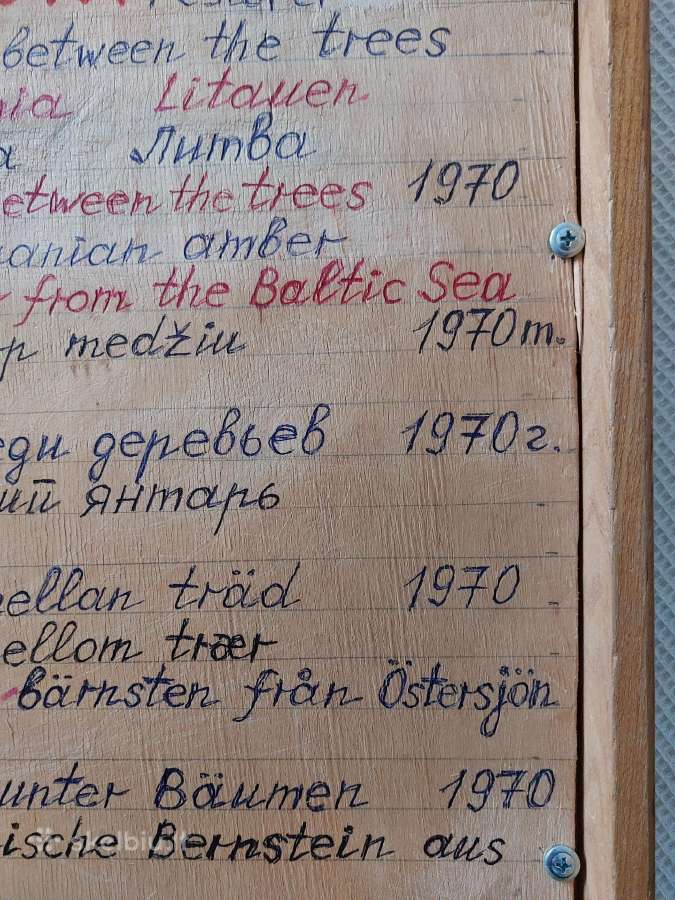 between the trees
nia Litauen
a Литва
etween the trees 1970
uanian amber
from the Baltic Sea
p medžiu 1970m.
еди деревьев 1970г.
ий янтарь
ellan träd 1970
ellom trær
bärnsten från Östersjön
unter Bäumen 1970
ische Bernstein aus